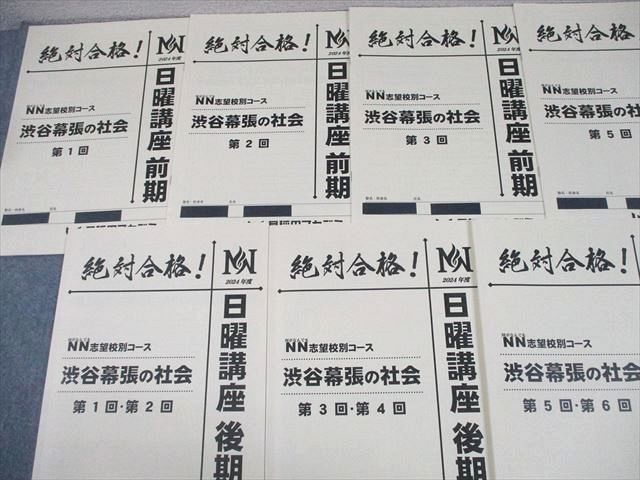 絶対合格！
2024年度
NN志望校別コース
渋谷幕張の社会
第1回
日曜講座 前期
絶対合格！
2024年度
NN志望校別コース
渋谷幕張の社会
第2回
日曜講座 前期
絶対合格！
2024年度
NN志望校別コース
渋谷幕張の社会
第3回
日曜講座 前期
絶対合格
NN志望校別コース
渋谷幕張の社
第5回
絶対合格！
2024年度
NN志望校別コース
渋谷幕張の社会
第1回・第2回
日曜講座 後期
絶対合格！
2024年度
NN志望校別コース
渋谷幕張の社会
第3回・第4回
日曜講座 後期
絶対合格！
NN志望校別コース
渋谷幕張の社会
第5回・第6回